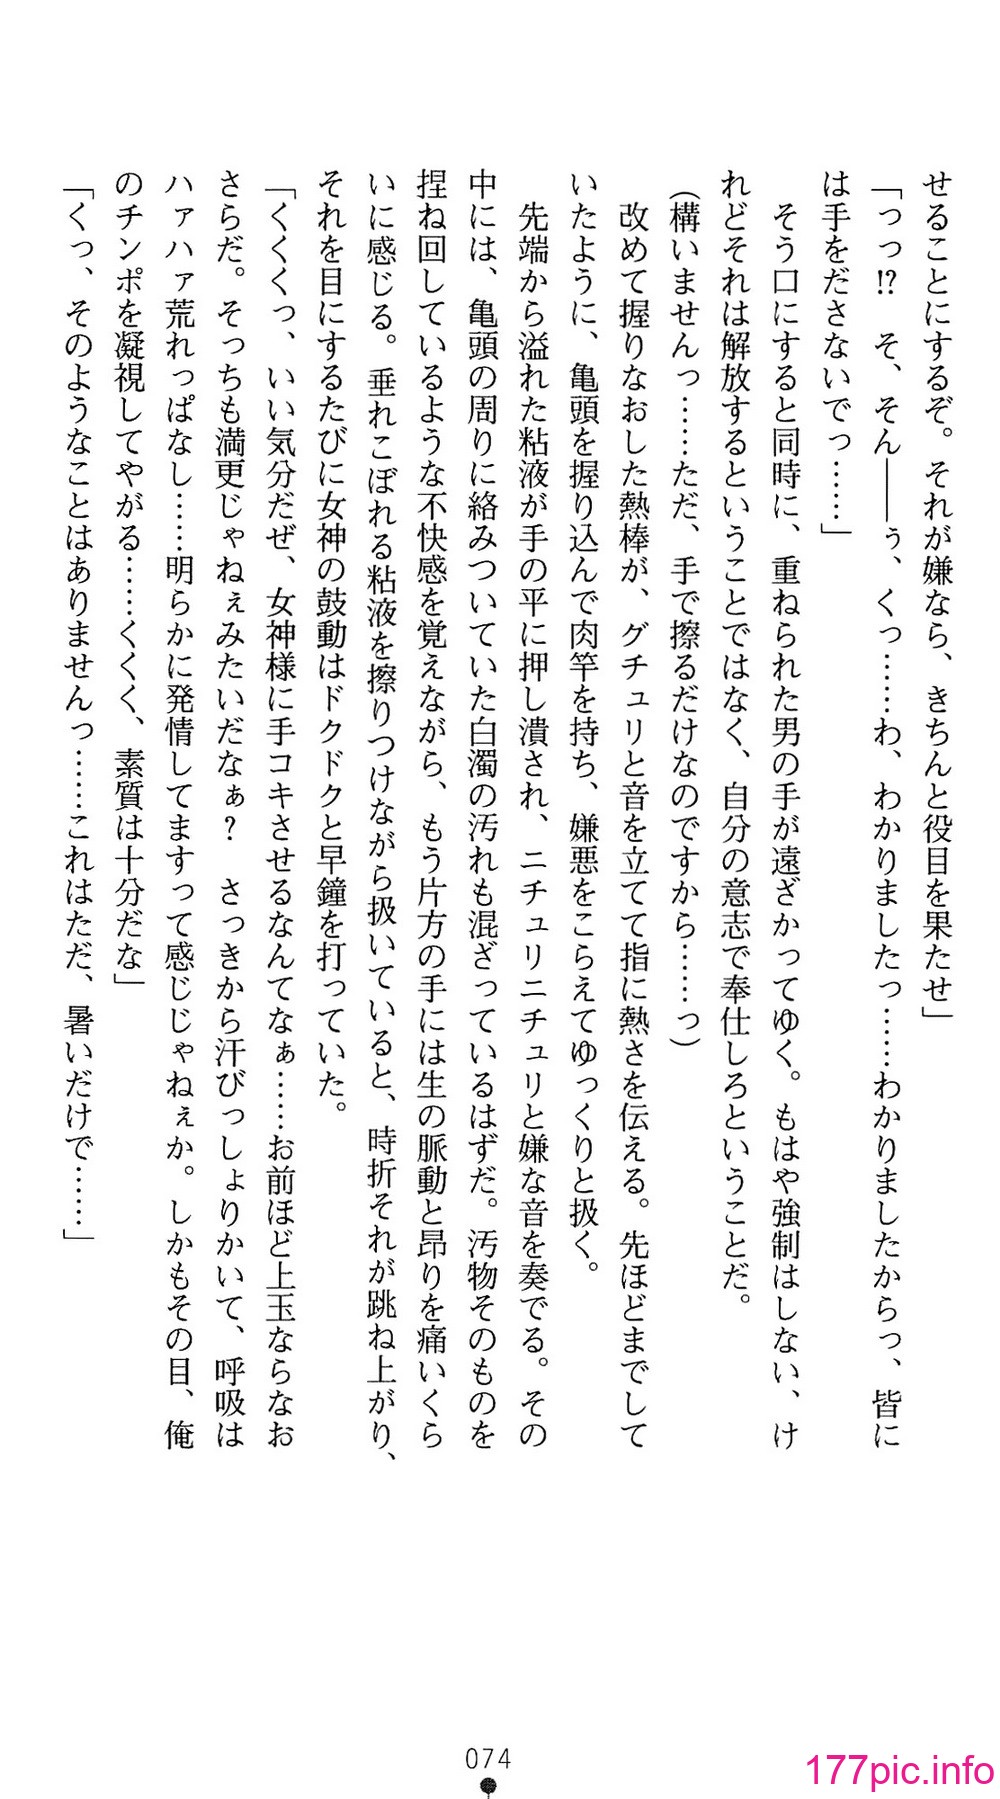 せることにするぞ。それが嫌なら、きちんと役目を果たせ」
「っっ!?　そ、そん――ぅ、くっ……わ、わかりましたっ……わかりましたからっ、皆に
は手をださないでっ……」
　そう口にすると同時に、重ねられた男の手が遠ざかってゆく。もはや強制はしない、け
れどそれは解放するということではなく、自分の意志で奉仕しろということだ。
(構いませんっ……ただ、手で擦るだけなのですから……っ)
　改めて握りなおした熱棒が、グチュリと音を立てて指に熱さを伝える。先ほどまでして
いたように、亀頭を握り込んで肉竿を持ち、嫌悪をこらえてゆっくりと扱く。
　先端から溢れた粘液が手の平に押し潰され、ニチュリニチュリと嫌な音を奏でる。その
中には、亀頭の周りに絡みついていた白濁の汚れも混ざっているはずだ。汚物そのものを
捏ね回しているような不快感を覚えながら、もう片方の手には生の脈動と昂りを痛いくら
いに感じる。垂れこぼれる粘液を擦りつけながら扱いていると、時折それが跳ね上がり、
それを目にするたびに女神の鼓動はドクドクと早鐘を打っていた。
「くくくっ、いい気分だぜ、女神様に手コキさせるなんてなぁ……お前ほど上玉ならなお
さらだ。そっちも満更じゃねぇみたいだなぁ?　さっきから汗びっしょりかいて、呼吸は
ハァハァ荒れっぱなし……明らかに発情してますって感じじゃねぇか。しかもその目、俺
のチンポを凝視してやがる……くくく、素質は十分だな」
「くっ、そのようなことはありませんっ……これはただ、暑いだけで……」
074
177pic.info